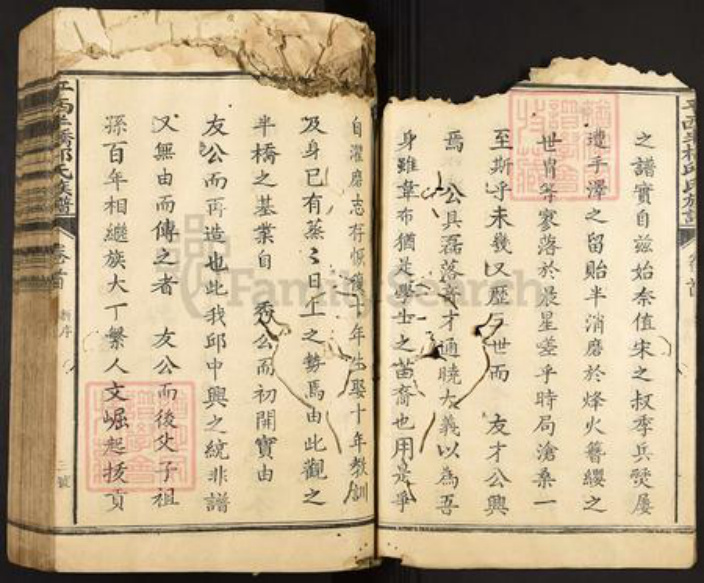 之譜實自茲始奈值宋之叔季兵燹屢
遭手澤之留貽半消磨於烽火簪纓之
世胄等寥落於晨星嗟乎時局滄桑一
至斯乎未幾又歷三世而 友才公興
焉 公具磊落奇才通曉大義以為吾
身雖韋布猶是學士之苗裔也用是爭
自濯磨志存恢復十年生聚十年教訓
及身已有蒸〻日上之勢焉由此觀之
半橋之基業自 秀公而初開實由
友公而再造也此我邱中興之統非譜
又無由而傳之者 友公而後父子祖
孫百年相繼族大丁繁人文崛起拔貢
江西半橋邱氏族譜 卷首 新序 三號
FamilySearch